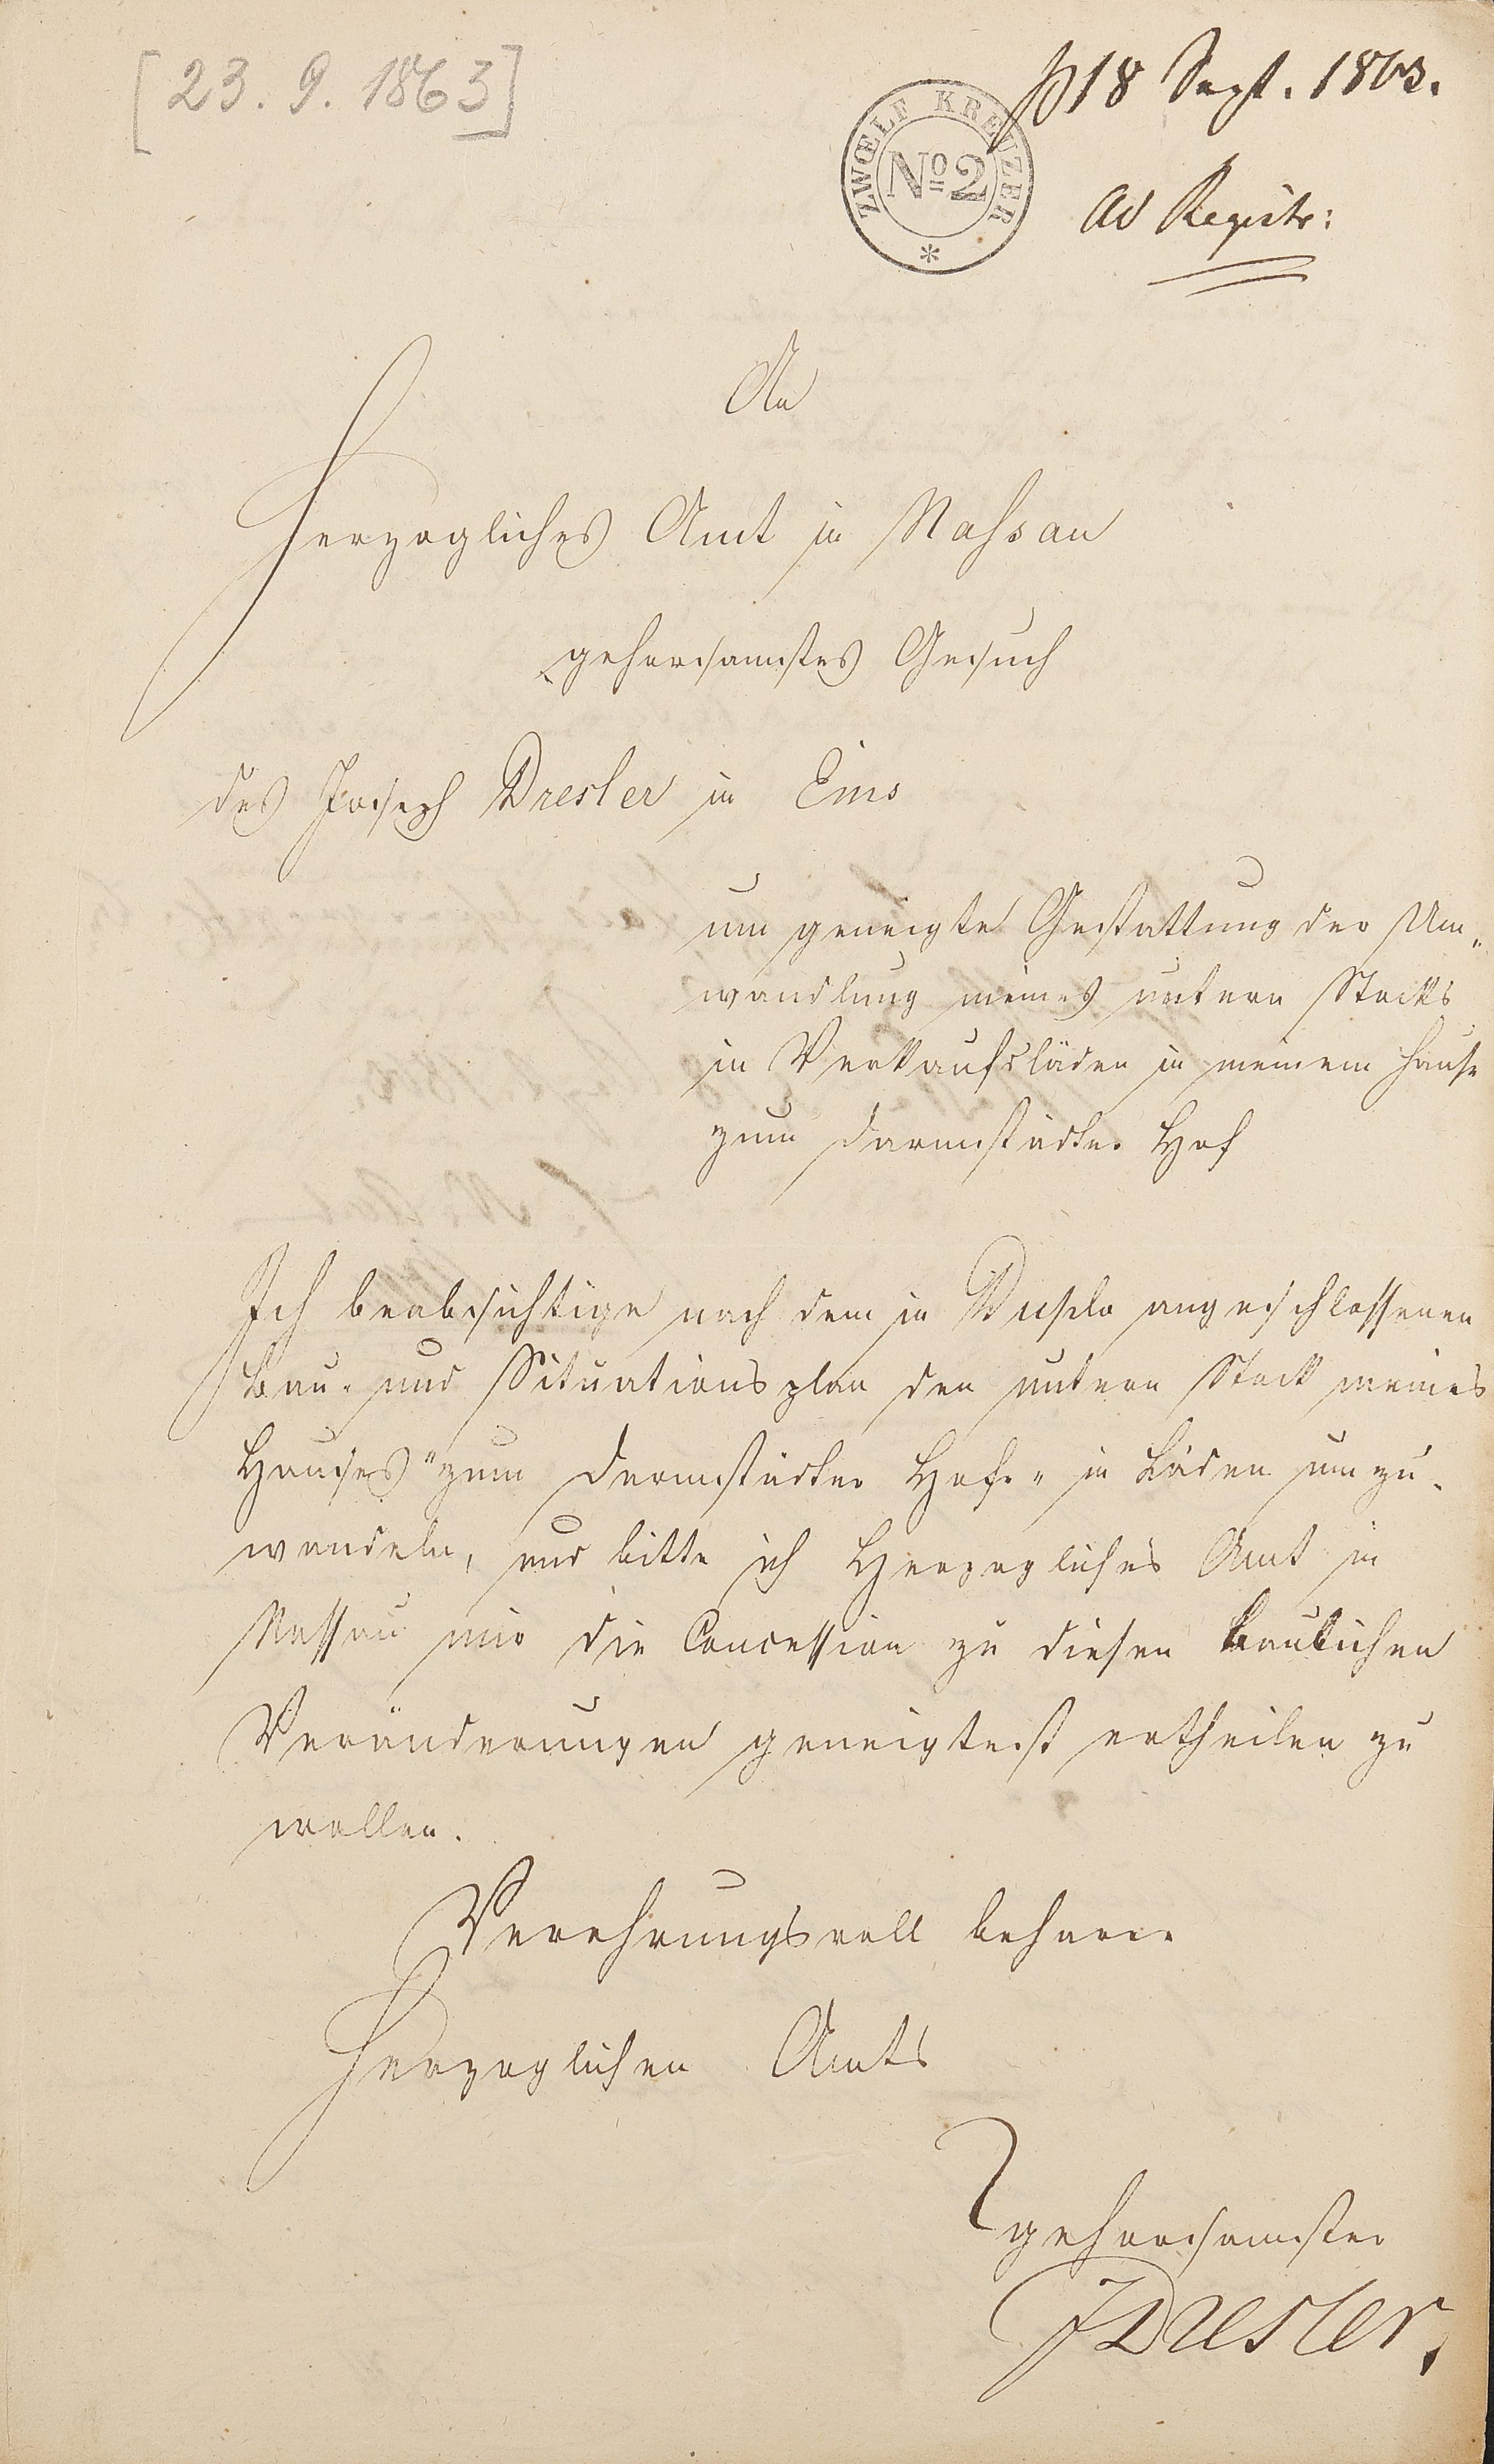 [23. 9. 1863]
18 Sept. 1863.
ZWŒLF KREUZER
No 2
*
Ad Registr:
An
Herzogliches Amt in Nassau
gehorsamstes Gesuch
des Joseph Dresler in Ems
um geneigte Gestattung der Um„
wandlung meines untern Stocks
in Verkaufsläden in meinem Hause
zum Darmstädter Hof
Ich beabsichtige nach dem in Duplo angeschlossenen
Bau- und Situationsplan den untern Stock meines
Hauses "zum Darmstädter Hofe" in Läden umzu-
wandeln, und bitte ich Herzogliches Amt in
Nassau mir die Concession zu diesen baulichen
Veränderungen geneigtest ertheilen zu
wollen.
Verehrungsvoll beharre
Herzoglichen Amts
gehorsamster
J Dresler,